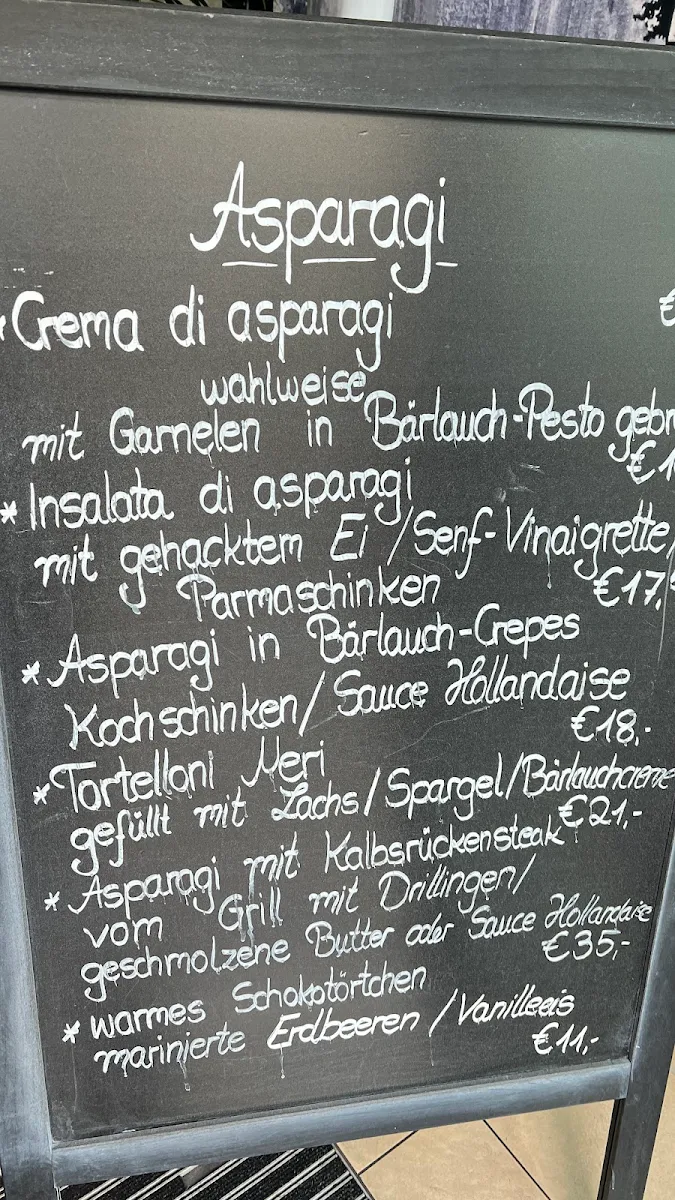 Asparagi
* Crema di asparagi €
wahlweise
mit Garnelen in Bärlauch-Pesto gebr
€1
* Insalata di asparagi
mit gehacktem Ei / Senf-Vinaigrette,
Parmaschinken €17,
* Asparagi in Bärlauch-Crepes
Kochschinken / Sauce Hollandaise
€18,-
* Tortelloni Neri
gefüllt mit Lachs / Spargel / Bärlauchcreme
€21,-
* Asparagi mit Kalbsrückensteak
vom Grill mit Drillingen /
geschmolzene Butter oder Sauce Hollandaise
€35,-
* warmes Schokotörtchen
marinierte Erdbeeren / Vanilleeis
€11,-